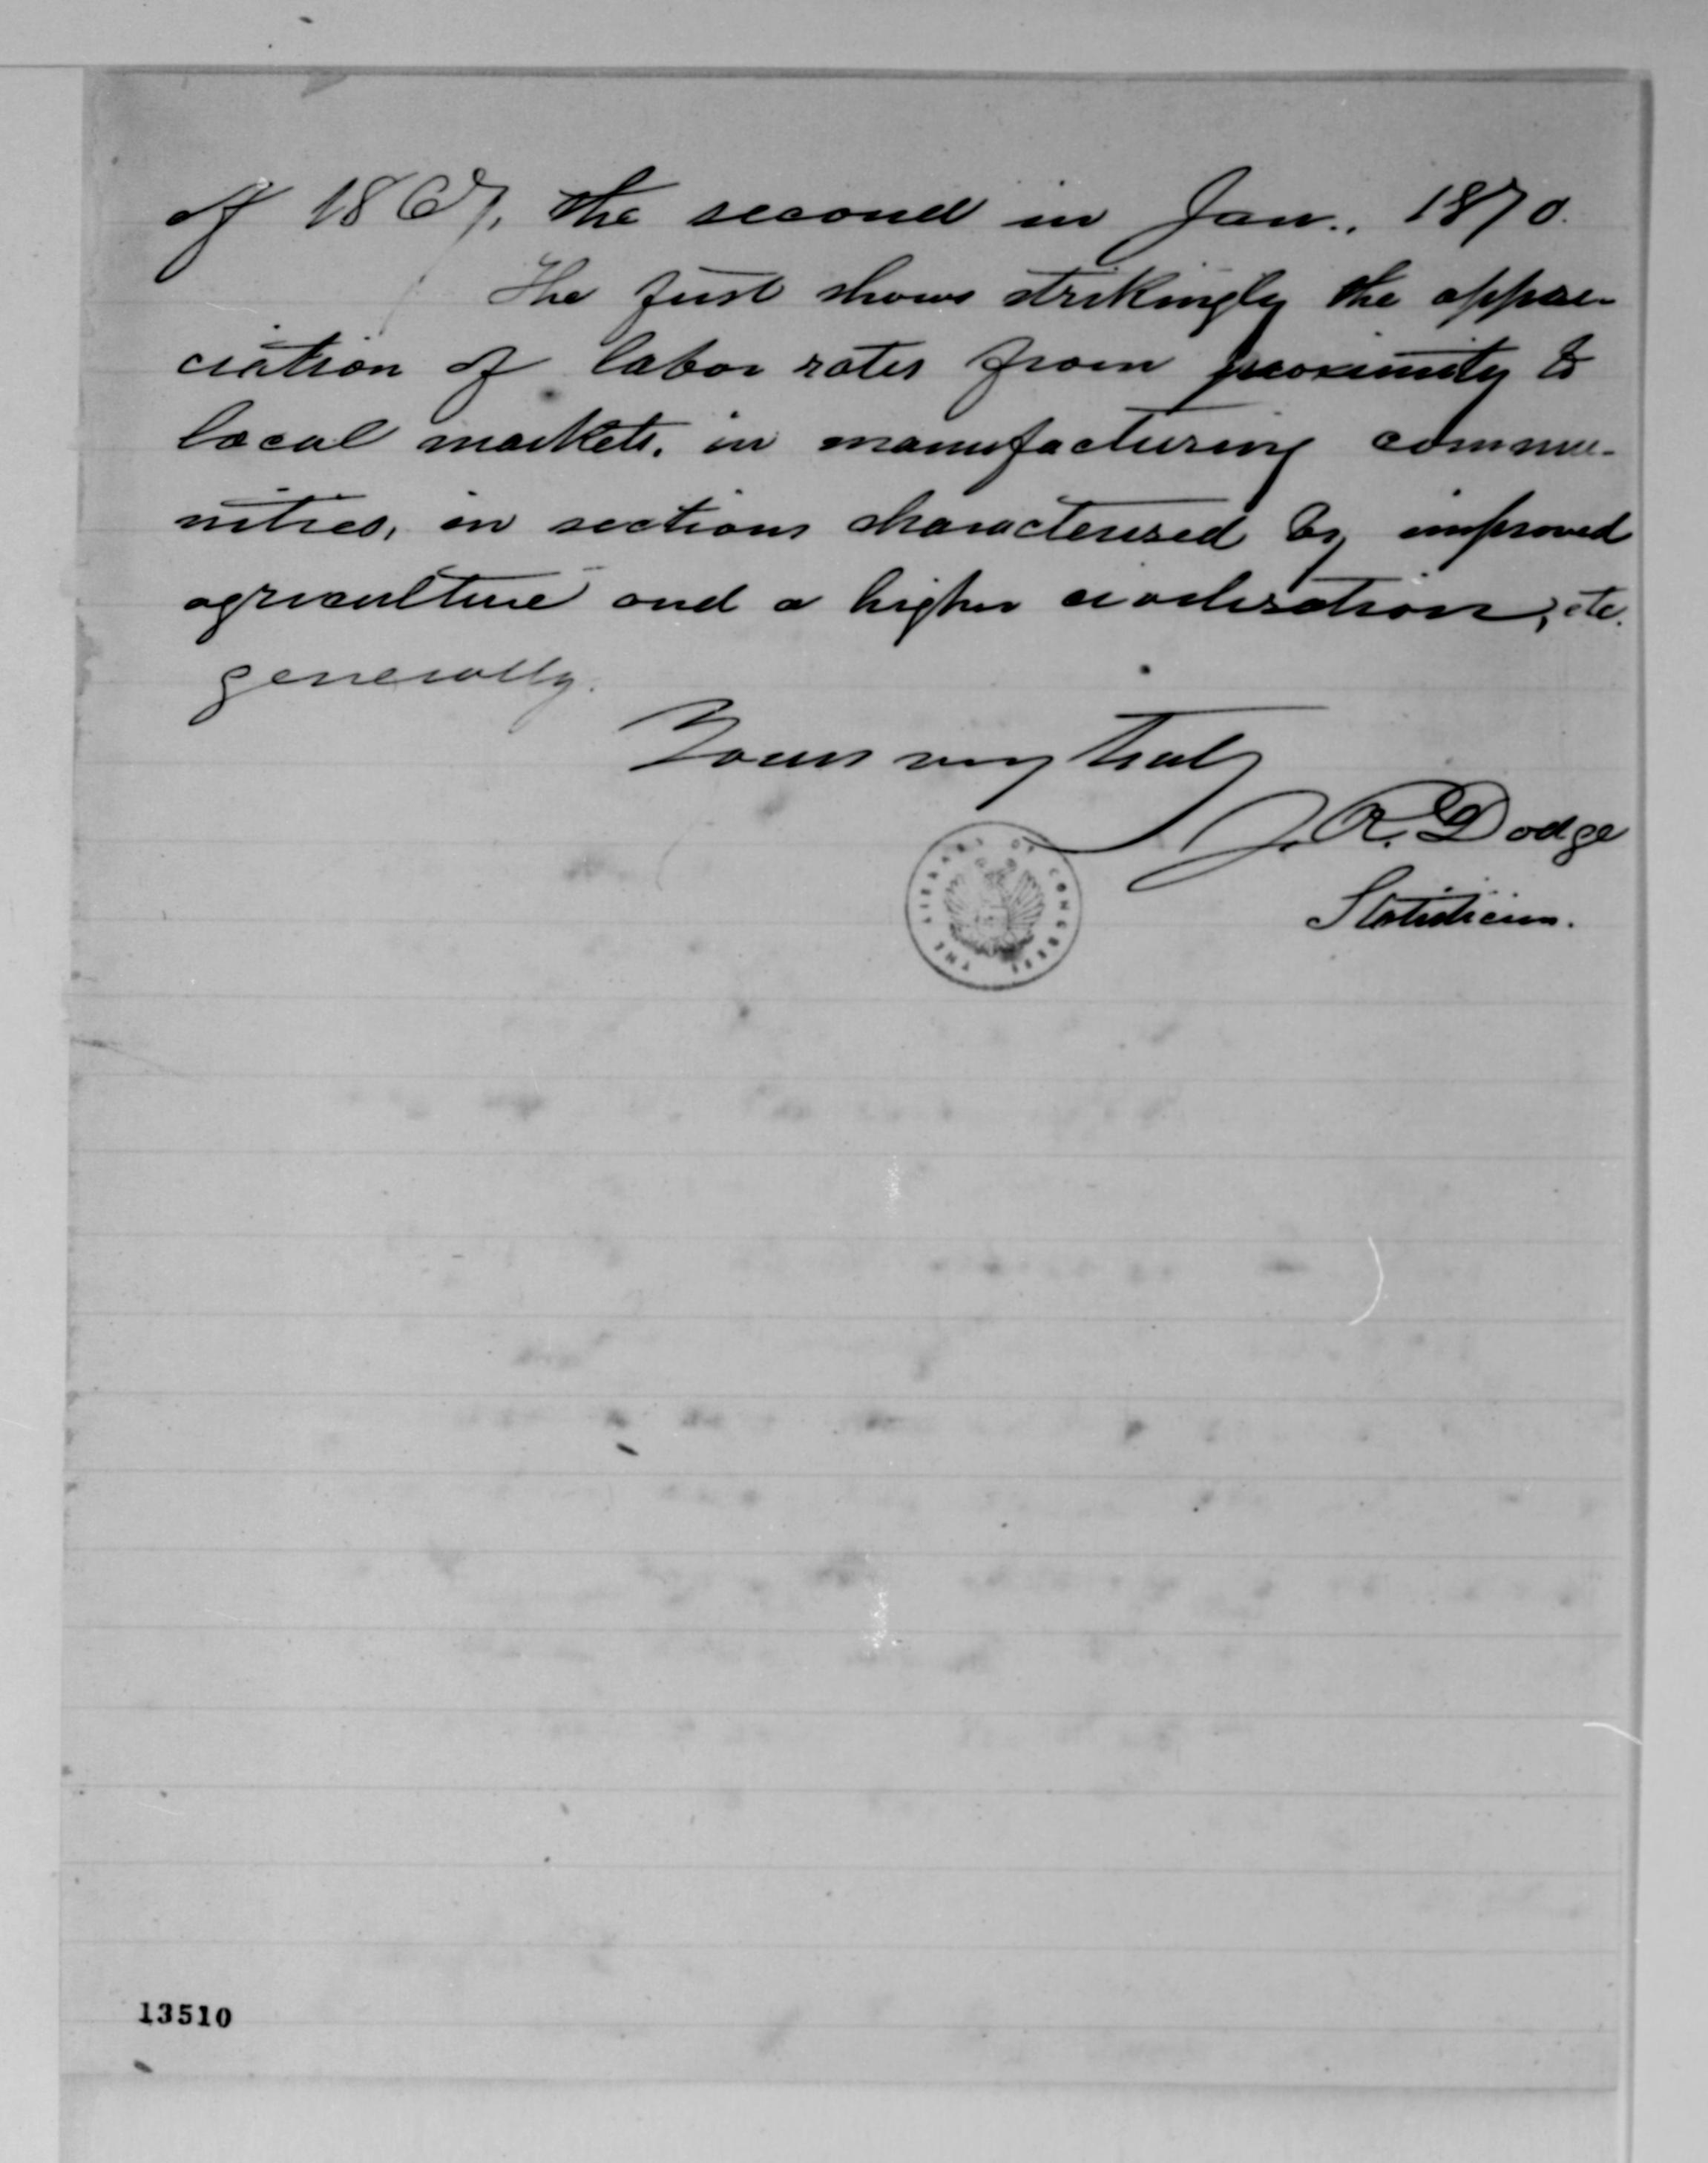 of 1867, the second in Jan., 1870.
The first shows strikingly the appre-
ciation of labor rates from proximity to
local markets, in manufacturing commu-
nities, in sections characterized by improved
agriculture and a higher civilization, etc.
generally.
Yours very truly
J. R. Dodge
Statistician.
THE LIBRARY OF CONGRESS
13510